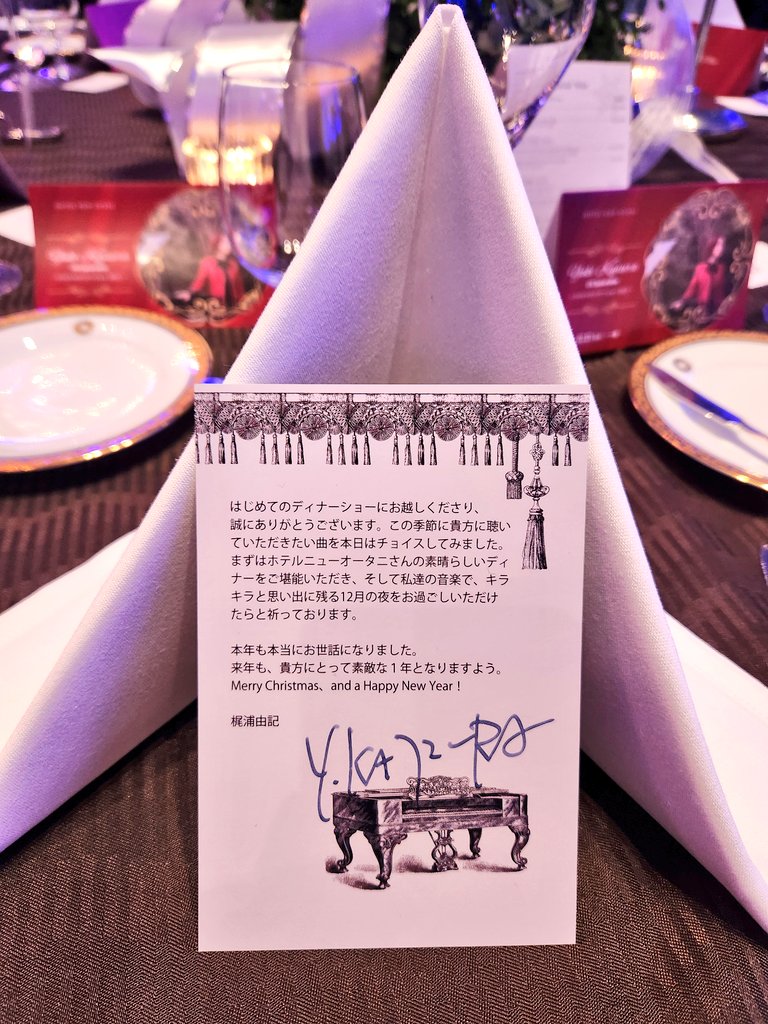 はじめてのディナーショーにお越しくださり、
誠にありがとうございます。この季節に貴方に聴い
ていただきたい曲を本日はチョイスしてみました。
まずはホテルニューオータニさんの素晴らしいディ
ナーをご堪能いただき、そして私達の音楽で、キラ
キラと思い出に残る12月の夜をお過ごしいただけ
たらと祈っております。
本年も本当にお世話になりました。
来年も、貴方にとって素敵な1年となりますよう。
Merry Christmas、and a Happy New Year！
梶浦由記
Y.KAJIURA